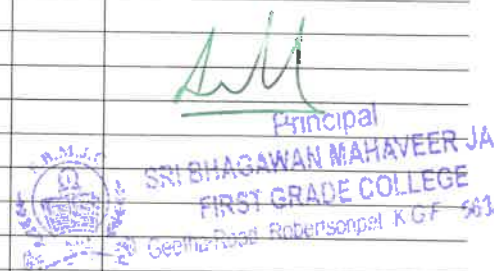 Principal
SRI BHAGAWAN MAHAVEER JA
FIRST GRADE COLLEGE
Geetha Road Robertsonpet K G F 563